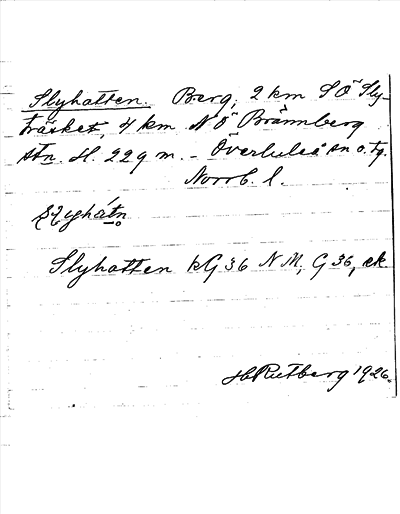 Slyhatten. Berg, 2 km SÖ Sly-
träsket, 4 km NÖ Brännberg
stn. H. 229 m. - Överluleå sn o. tg.
Norrb. l.
Slyhatten kG 36 N M, G 36, ek
H Rutberg 1926.